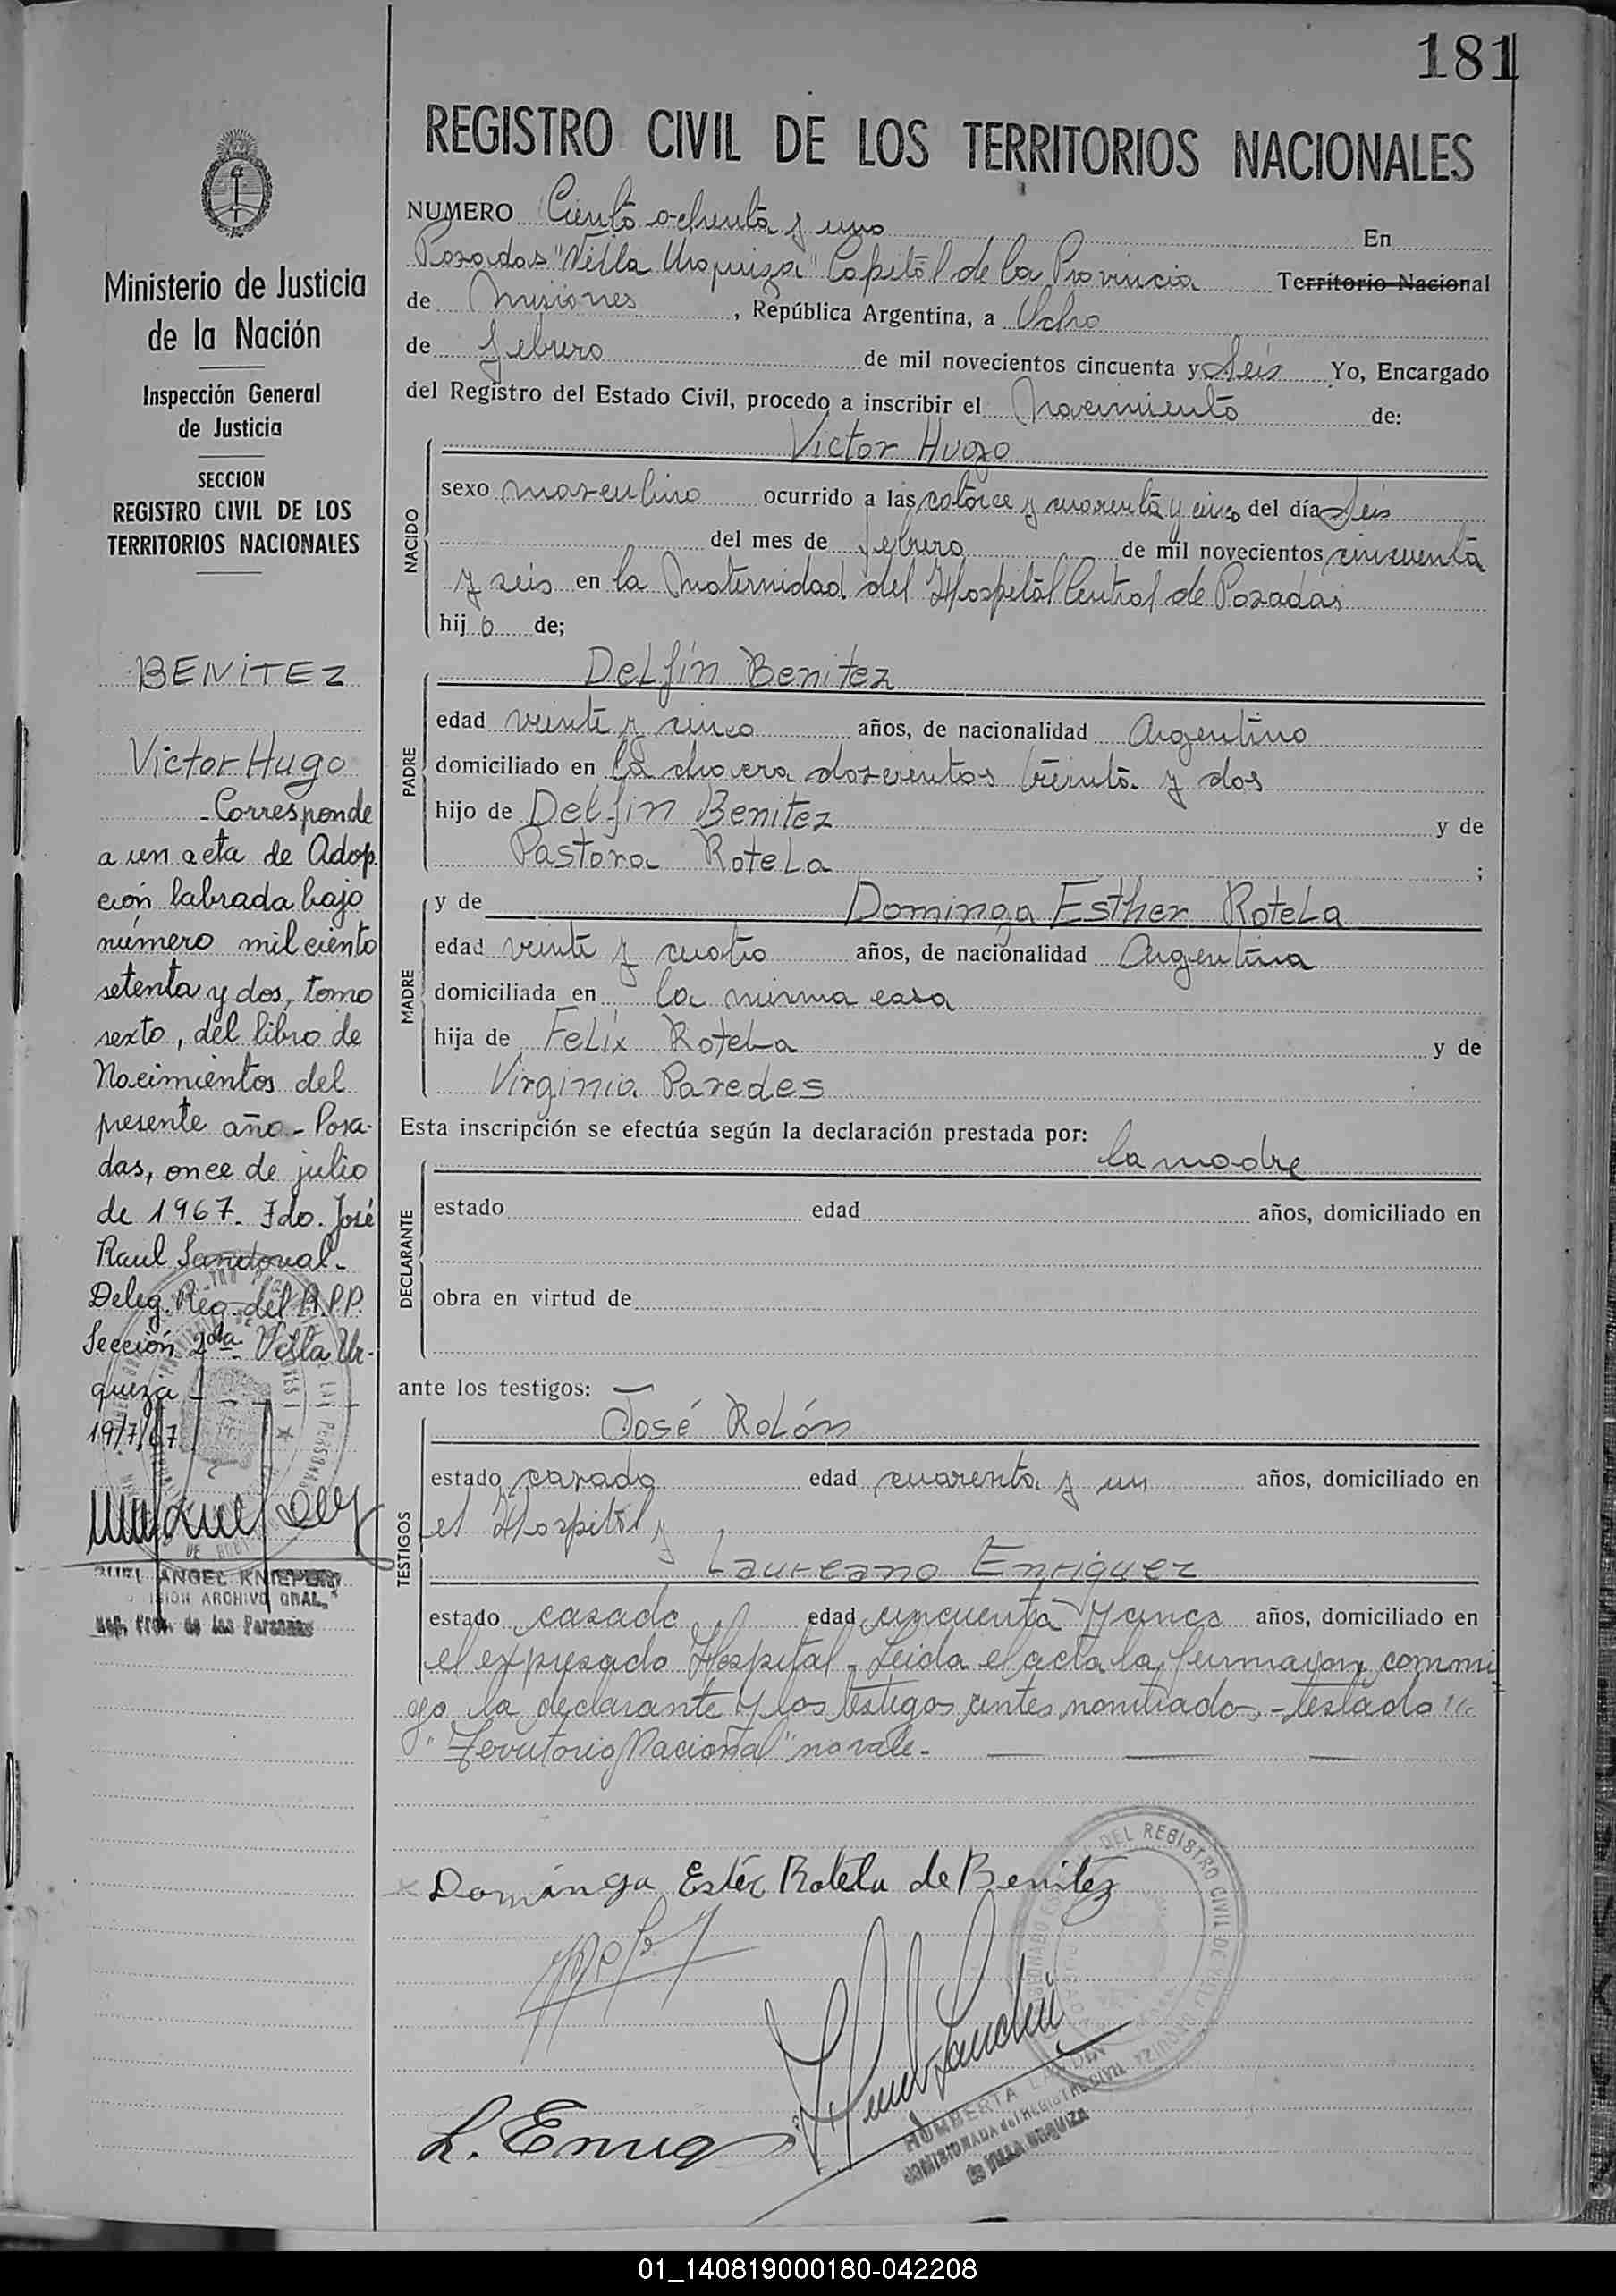 181
REGISTRO CIVIL DE LOS TERRITORIOS NACIONALES
NUMERO Ciento ochenta y uno En
Posadas "Villa Urquiza" Capital de la Provincia Territorio Nacional
de Misiones, República Argentina, a Ocho
de febrero de mil novecientos cincuenta y Seis Yo, Encargado
del Registro del Estado Civil, procedo a inscribir el Nacimiento de:
Victor Hugo
NACIDO
sexo masculino ocurrido a las catorce y cuarenta y cinco del día Seis
del mes de febrero de mil novecientos cincuenta
y seis en la Maternidad del Hospital Central de Posadas
hijo de;
Delfín Benitez
PADRE
edad veinte y cinco años, de nacionalidad Argentino
domiciliado en la chacra doscientos treinta y dos
hijo de Delfin Benitez y de
Pastora Rotela ;
y de Dominga Esther Rotela
MADRE
edad veinte y cuatro años, de nacionalidad Argentina
domiciliada en la misma casa
hija de Felix Rotela y de
Virginia Paredes
Esta inscripción se efectúa según la declaración prestada por:
la madre
DECLARANTE
estado edad años, domiciliado en
obra en virtud de
ante los testigos:
José Rolón
TESTIGOS
estado casado edad cuarenta y un años, domiciliado en
el Hospital y
Laureano Enriquez
estado casado edad cincuenta y cinco años, domiciliado en
el expresado Hospital - Leida el acta la firmaron conmi
go la declarante y los testigos antes nombrados - Testado "
"Territorio Nacional" no vale -
Dominga Estér Rotela de Benitez
L. Enriq
DEL REGISTRO CIVIL DE VILLA URQUIZA
HUMBERTA
COMISIONADA del REGISTRO CIVIL
de VILLA URQUIZA
Ministerio de Justicia
de la Nación
Inspección General
de Justicia
SECCION
REGISTRO CIVIL DE LOS
TERRITORIOS NACIONALES
BENITEZ
Victor Hugo
- Corresponde
a un acta de Adop.
ción labrada bajo
número mil ciento
setenta y dos, tomo
sexto, del libro de
Nacimientos del
presente año - Posa-
das, once de julio
de 1967. Fdo. José
Raul Sandoval -
Deleg. Reg. del R.P.P.
Sección 2da. Villa Ur-
quiza -
19/7/67
ANGEL
ARCHIVO GRAL.
Reg. Prov. de las Personas
01_140819000180-042208